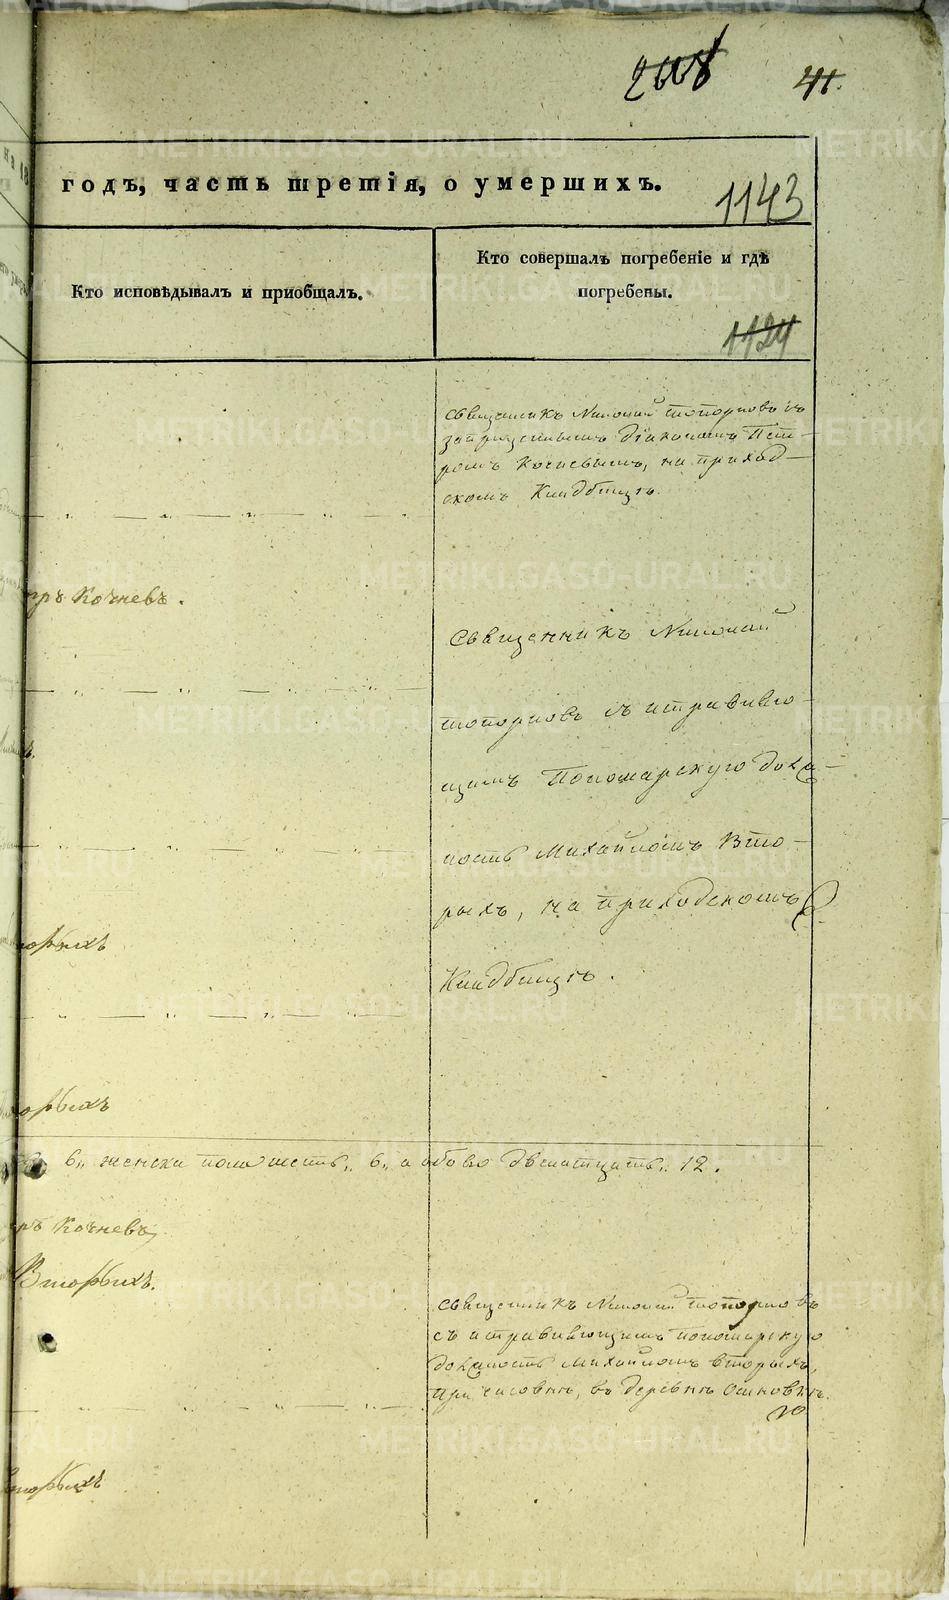 41.
1143
годъ, часть третія, о умершихъ.
Кто исповѣдывалъ и пріобщалъ.
Кто совершалъ погребеніе и гдѣ
погребены.
1124
Священникъ Николай Топорковъ съ
запрещеннымъ Діакономъ Пет-
ромъ Кочневымъ, на приход-
скомъ Кладбищѣ.
Кочневъ.
Священникъ Николай
Топорковъ съ исправляю-
щимъ Пономарскую долж-
ность Михайломъ Вто-
рыхъ, на приходскомъ
Кладбищѣ.
6,, женска пола шесть,, 6,, а обоего двенатцать,, 12.
Кочневъ
Вторыхъ.
Священникъ Николай Топорковъ
съ исправляющимъ пономарскую
должность Михайломъ Вторыхъ,
при часовнѣ, въ деревнѣ
METRIKI.GASO-URAL.RU